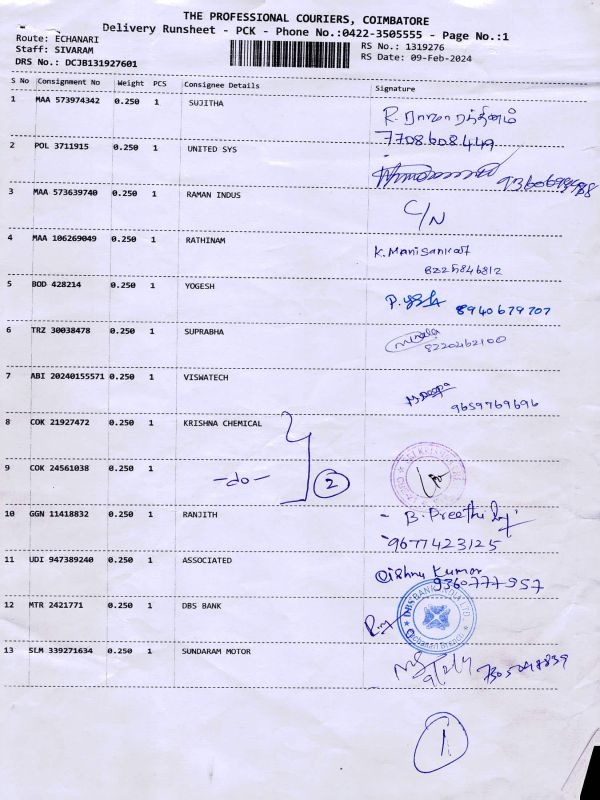 THE PROFESSIONAL COURIERS, COIMBATORE
Delivery Runsheet - PCK - Phone No.:0422-3505555 - Page No.:1
Route: ECHANARI RS No.: 1319276
Staff: SIVARAM RS Date: 09-Feb-2024
DRS No.: DCJB131927601
S No Consignment No Weight PCS Consignee Details Signature
1 MAA 573974342 0.250 1 SUJITHA
7708608449
2 POL 3711915 0.250 1 UNITED SYS
3 MAA 573639740 0.250 1 RAMAN INDUS
C/N
4 MAA 106269049 0.250 1 RATHINAM K. Manisankar
8225846812
5 BOD 428214 0.250 1 YOGESH
8940679707
6 TRZ 30038478 0.250 1 SUPRABHA
8220462100
7 ABI 20240155571 0.250 1 VISWATECH
9659769696
8 COK 21927472 0.250 1 KRISHNA CHEMICAL
9 COK 24561038 0.250 1 -do- 2
10 GGN 11418832 0.250 1 RANJITH - B. Preethi
9677423125
11 UDI 947389240 0.250 1 ASSOCIATED Vishnu Kumar
9360777957
12 MTR 2421771 0.250 1 DBS BANK DBS BANK INDIA LTD.
13 SLM 339271634 0.250 1 SUNDARAM MOTOR 9/2/24 7305048839
1